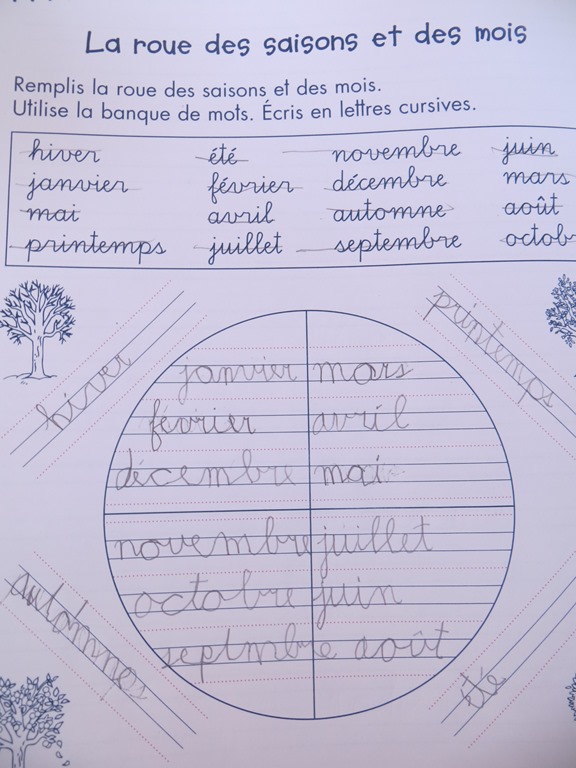 La roue des saisons et des mois
Remplis la roue des saisons et des mois.
Utilise la banque de mots. Écris en lettres cursives.
hiver été novembre juin
janvier février décembre mars
mai avril automne août
printemps juillet septembre octob
hiver
printemps
janvier mars
février avril
décembre mai
novembre juillet
octobre juin
septmbre août
automnes
été